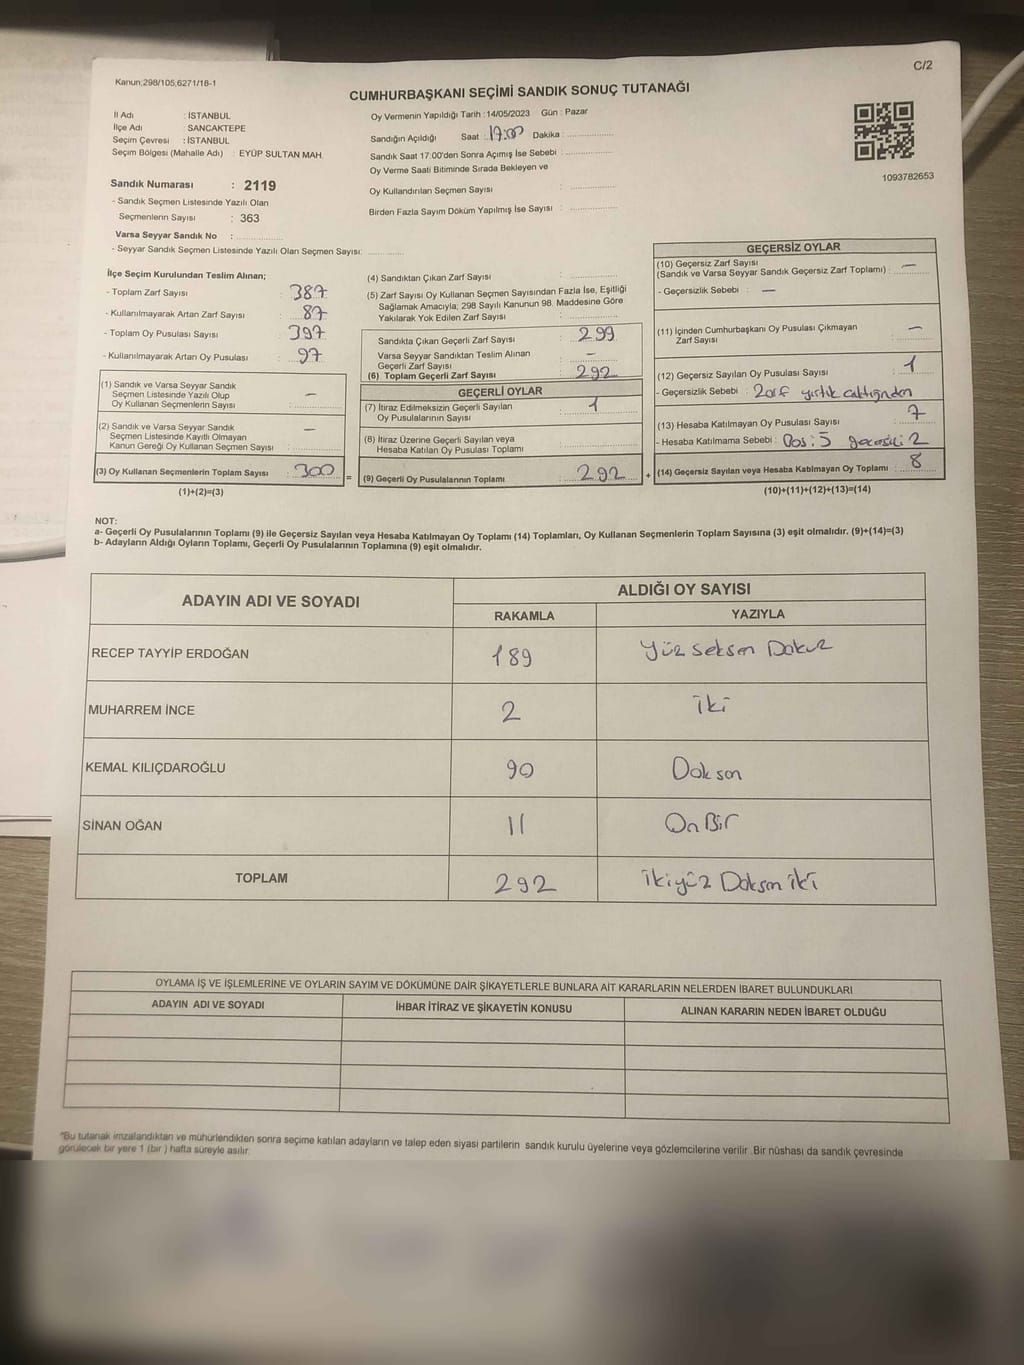 C/2
Kanun;298/105,6271/18-1
CUMHURBAŞKANI SEÇİMİ SANDIK SONUÇ TUTANAĞI
İl Adı : İSTANBUL
İlçe Adı : SANCAKTEPE
Seçim Çevresi : İSTANBUL
Seçim Bölgesi (Mahalle Adı) : EYÜP SULTAN MAH.
Sandık Numarası : 2119
- Sandık Seçmen Listesinde Yazılı Olan
Seçmenlerin Sayısı : 363
Varsa Seyyar Sandık No :
- Seyyar Sandık Seçmen Listesinde Yazılı Olan Seçmen Sayısı:
Oy Vermenin Yapıldığı Tarih :14/05/2023 Gün : Pazar
Sandığın Açıldığı Saat : 17:00 Dakika :
Sandık Saat 17:00'den Sonra Açımış İse Sebebi :
Oy Verme Saati Bitiminde Sırada Bekleyen ve
Oy Kullandırılan Seçmen Sayısı :
Birden Fazla Sayım Döküm Yapılmış İse Sayısı :
1093782653
İlçe Seçim Kurulundan Teslim Alınan;
- Toplam Zarf Sayısı : 387
- Kullanılmayarak Artan Zarf Sayısı : 87
- Toplam Oy Pusulası Sayısı : 397
- Kullanılmayarak Artan Oy Pusulası : 97
(1) Sandık ve Varsa Seyyar Sandık
Seçmen Listesinde Yazılı Olup
Oy Kullanan Seçmenlerin Sayısı : –
(2) Sandık ve Varsa Seyyar Sandık
Seçmen Listesinde Kayıtlı Olmayan
Kanun Gereği Oy Kullanan Seçmen Sayısı : –
(3) Oy Kullanan Seçmenlerin Toplam Sayısı : 300
(1)+(2)=(3)
(4) Sandıktan Çıkan Zarf Sayısı :
(5) Zarf Sayısı Oy Kullanan Seçmen Sayısından Fazla İse, Eşitliği
Sağlamak Amacıyla; 298 Sayılı Kanunun 98. Maddesine Göre
Yakılarak Yok Edilen Zarf Sayısı :
Sandıkta Çıkan Geçerli Zarf Sayısı : 299
Varsa Seyyar Sandıktan Teslim Alınan
Geçerli Zarf Sayısı : –
(6) Toplam Geçerli Zarf Sayısı : 292
GEÇERLİ OYLAR
(7) İtiraz Edilmeksizin Geçerli Sayılan
Oy Pusulalarının Sayısı : 1
(8) İtiraz Üzerine Geçerli Sayılan veya
Hesaba Katılan Oy Pusulası Toplamı :
= (9) Geçerli Oy Pusulalarının Toplamı : 292 +
GEÇERSİZ OYLAR
(10) Geçersiz Zarf Sayısı
(Sandık ve Varsa Seyyar Sandık Geçersiz Zarf Toplamı) : –
- Geçersizlik Sebebi : –
(11) İçinden Cumhurbaşkanı Oy Pusulası Çıkmayan
Zarf Sayısı : –
(12) Geçersiz Sayılan Oy Pusulası Sayısı : 1
- Geçersizlik Sebebi : Zarf yırtık çıktığından
(13) Hesaba Katılmayan Oy Pusulası Sayısı : 7
- Hesaba Katılmama Sebebi : Boş: 5 geçersiz: 2
(14) Geçersiz Sayılan veya Hesaba Katılmayan Oy Toplamı : 8
(10)+(11)+(12)+(13)=(14)
NOT:
a- Geçerli Oy Pusulalarının Toplamı (9) ile Geçersiz Sayılan veya Hesaba Katılmayan Oy Toplamı (14) Toplamları, Oy Kullanan Seçmenlerin Toplam Sayısına (3) eşit olmalıdır. (9)+(14)=(3)
b- Adayların Aldığı Oyların Toplamı, Geçerli Oy Pusulalarının Toplamına (9) eşit olmalıdır.
ADAYIN ADI VE SOYADI ALDIĞI OY SAYISI
RAKAMLA YAZIYLA
RECEP TAYYİP ERDOĞAN 189 Yüz seksen Dokuz
MUHARREM İNCE 2 iki
KEMAL KILIÇDAROĞLU 90 Doksan
SİNAN OĞAN 11 On Bir
TOPLAM 292 ikiyüz Doksan iki
OYLAMA İŞ VE İŞLEMLERİNE VE OYLARIN SAYIM VE DÖKÜMÜNE DAİR ŞİKAYETLERLE BUNLARA AİT KARARLARIN NELERDEN İBARET BULUNDUKLARI
ADAYIN ADI VE SOYADI İHBAR İTİRAZ VE ŞİKAYETİN KONUSU ALINAN KARARIN NEDEN İBARET OLDUĞU
*Bu tutanak imzalandıktan ve mühürlendikten sonra seçime katılan adayların ve talep eden siyasi partilerin sandık kurulu üyelerine veya gözlemcilerine verilir .Bir nüshası da sandık çevresinde
görülecek bir yere 1 (bir ) hafta süreyle asılır.